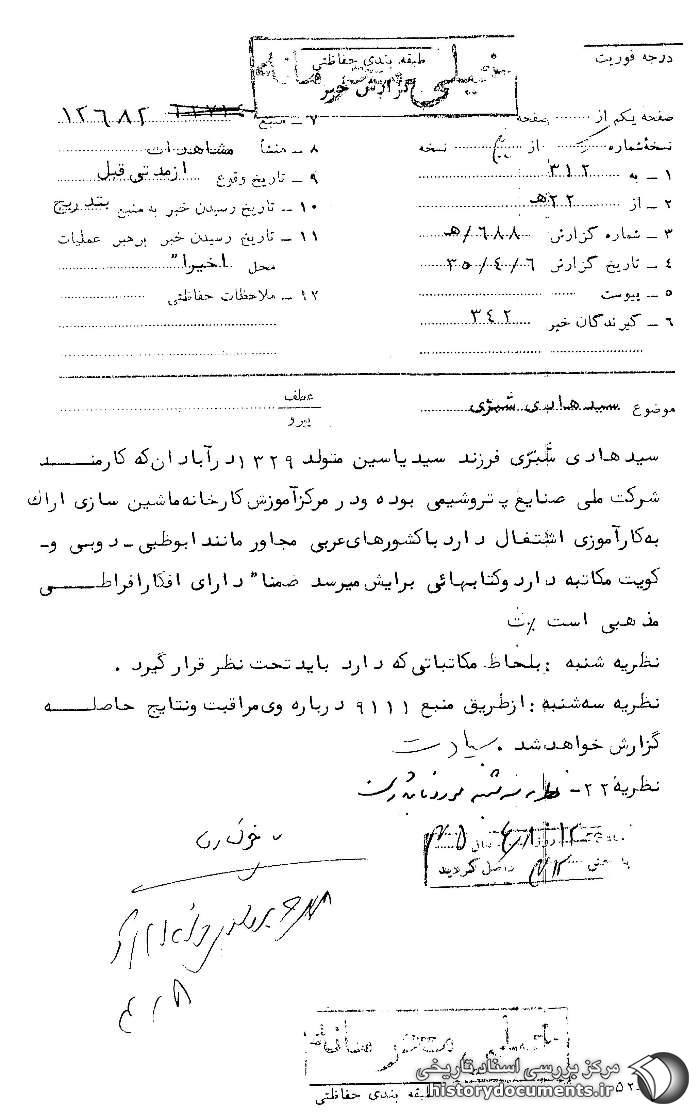 درجه فوریت
طبقه بندی حفاظتی
خیلی محرمانه
گزارش خبر
صفحه یکم از صفحه
نسخه شماره از نسخه
۱ ــ به ۳۱۲
۲ ــ از ۲۲ هـ
۳ ــ شماره گزارش ۶۸۸/هـ
۴ ــ تاریخ گزارش ۳۵/۴/۶
۵ ــ پیوست
۶ ــ گیرندگان خبر ۳۴۲
۷ ــ منبع ۱۲۶۸۲
۸ ــ منشأ مشاهدات
۹ ــ تاریخ وقوع ازمدتی قبل
۱۰ ــ تاریخ رسیدن خبر به منبع بتدریج
۱۱ ــ تاریخ رسیدن خبر برهبر عملیات
محل اخیرا"
۱۲ ــ ملاحظات حفاظتی
موضوع سید هادی شبّری
عطف
پیرو
سید هادی شبّری فرزند سید یاسین متولد ۱۳۲۹ درآبادان که کارمنــد
شرکت ملی صنایع پتروشیمی بوده ودر مرکزآموزش کارخانه ماشین سازی اراك
به کارآموزی اشتغال دارد باکشورهای عربی مجاور مانند ابوظبی ــ دوبی و ــ
کویت مکاتبه دارد وکتابهائی برایش میرسد ضمنا" دارای افکارافراطــی
مذهبی است
نظریه شنبه : بلحاظ مکاتباتی که دارد باید تحت نظر قرار گیرد .
نظریه سه شنبه : ازطریق منبع ۹۱۱۱ درباره وی مراقبت ونتایج حاصلــه
گزارش خواهد شد . سیادت
نظریه ۲۲ــ نظریه سه شنبه مورد تائید است
واصل گردید
۴/۸
طبقه بندی حفاظتی
مرکز بررسی اسناد تاریخی
historydocuments.ir